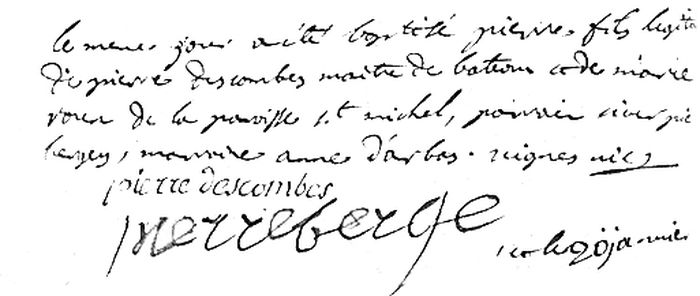 le meme jour a été baptisé pierre fils legit
de pierre descombes maitre de bateau et de marie
roux de la paroisse st michel, parrain sieur pie
bergey, marraine anne darbas. vignes vic
pierre descombes
pierre berge